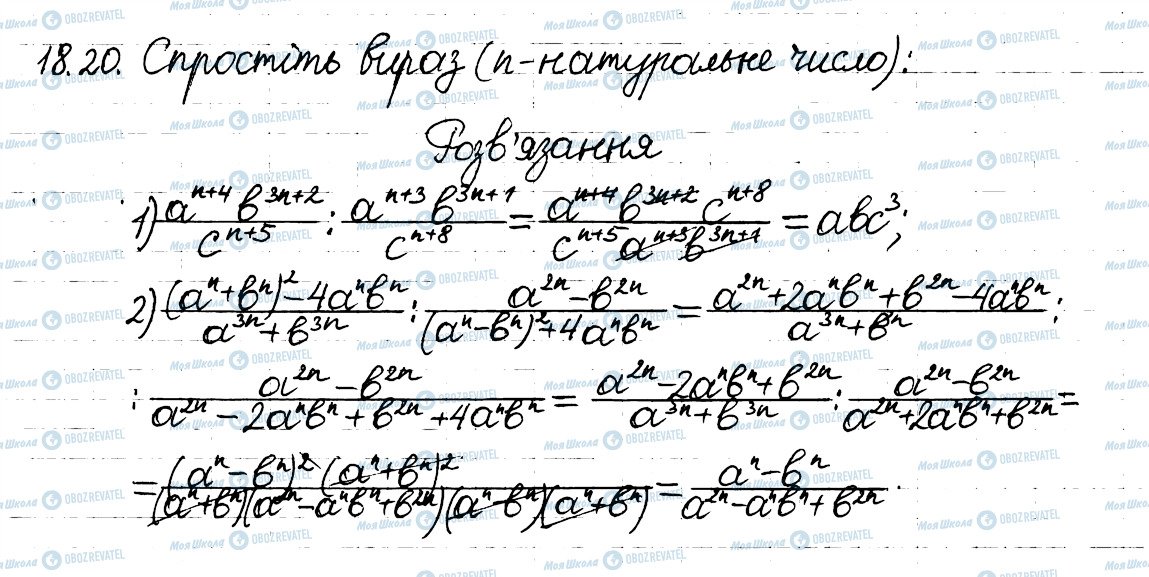 18.20. Спростіть вираз (n-натуральне число):
Розв'язання
1) a^{n+4} b^{3n+2} / c^{n+5} : a^{n+3} b^{3n+1} / c^{n+8} = a^{n+4} b^{3n+2} c^{n+8} / c^{n+5} a^{n+3} b^{3n+1} = abc^3;
2) (a^n+b^n)^2-4a^n b^n / a^{3n}+b^{3n} : a^{2n}-b^{2n} / (a^n-b^n)^2+4a^n b^n = a^{2n}+2a^n b^n+b^{2n}-4a^n b^n / a^{3n}+b^{3n} :
: a^{2n}-b^{2n} / a^{2n}-2a^n b^n+b^{2n}+4a^n b^n = a^{2n}-2a^n b^n+b^{2n} / a^{3n}+b^{3n} : a^{2n}-b^{2n} / a^{2n}+2a^n b^n+b^{2n} =
= (a^n-b^n)^2 (a^n+b^n)^2 / (a^n+b^n)(a^{2n}-a^n b^n+b^{2n})(a^n-b^n)(a^n+b^n) = a^n-b^n / a^{2n}-a^n b^n+b^{2n}.
Моя Школа OBOZREVATEL